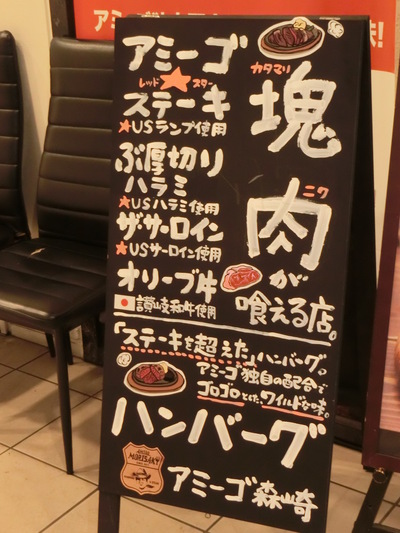 アミーゴ
レッド★スター
ステーキ
★USランプ使用
ぶ厚切り
ハラミ
★USハラミ使用
ザ・サーロイン
★USサーロイン使用
オリーブ牛
讃岐和牛使用
カタマリ
塊
ニク
肉
が
喰える店。
「ステーキを超えた」ハンバーグ。
アミーゴ独自の配合で
ゴロゴロとした、ワイルドな味。
ハンバーグ
MORISAKI
アミーゴ森崎